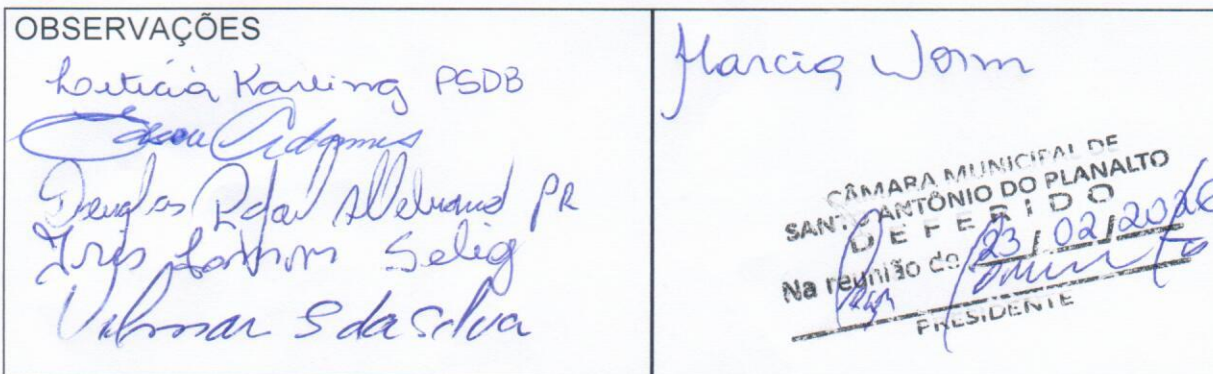 OBSERVAÇÕES
Leticia Karling PSDB
Adames
Douglas Rafael PR
Iris Selig
Vilmar S da Silva
Marcia Worm
CÂMARA MUNICIPAL DE
SANTO ANTÔNIO DO PLANALTO
DEFERIDO
Na reunião do 23/02/2026
PRESIDENTE